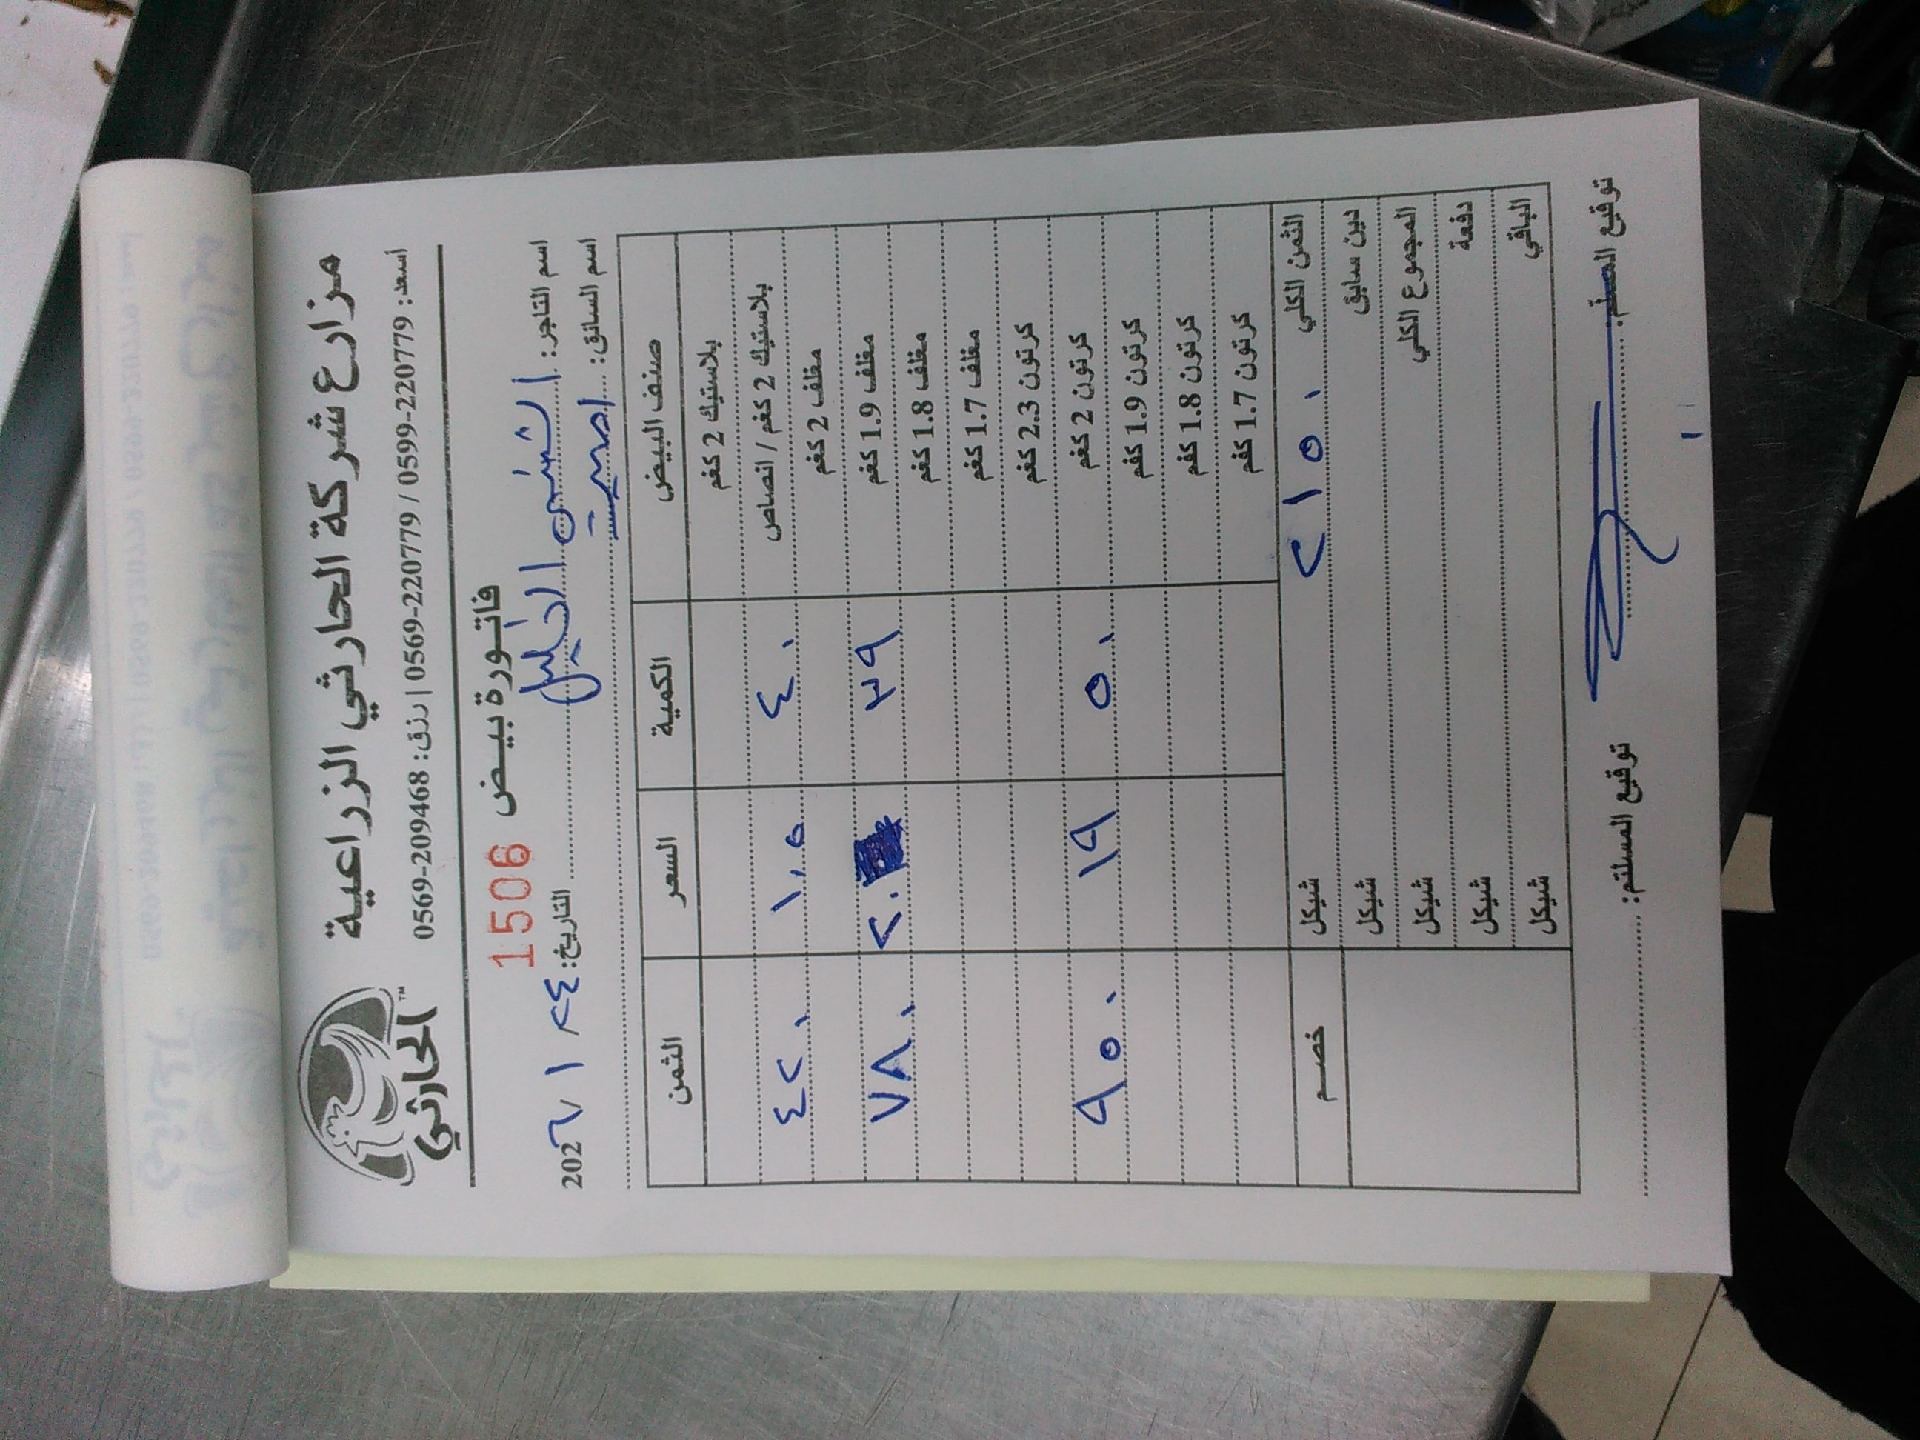 مزارع شركة الحارثي الزراعية
اسعد: 0599-220779 / 0569-220779 | رزق: 0569-209468
الحارثي ™
فاتورة بيض 1506
اسم التاجر: الشني الخليل
التاريخ: ٢٤ / 202٦
اسم السائق:
صنف البيض الكمية السعر الثمن
بلاستيك 2 كغم
بلاستيك 2 كغم / انصاص ٤٠ ١٠,٥ ٤٢٠
مغلف 2 كغم
مغلف 1.9 كغم ٣٩ ٢٠ ٧٨٠
مغلف 1.8 كغم
مغلف 1.7 كغم
كرتون 2.3 كغم
كرتون 2 كغم ٥٠ ١٩ ٩٥٠
كرتون 1.9 كغم
كرتون 1.8 كغم
كرتون 1.7 كغم
الثمن الكلي ٢١٥٠ شيكل خصم
دين سابق شيكل
المجموع الكلي شيكل
دفعة شيكل
الباقي شيكل
توقيع المسلم: توقيع المستلم: